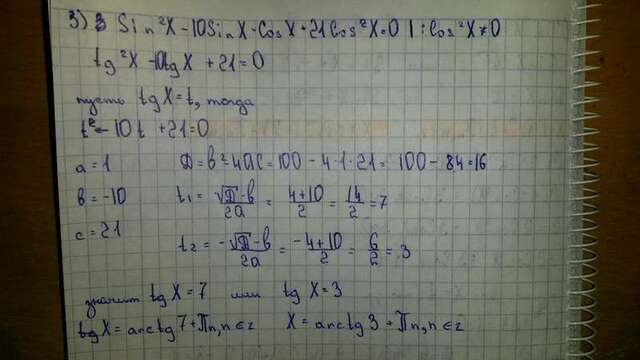 3) 3 Sin²X - 10SinX·CosX + 21Cos²X=0 | : Cos²X≠0
tg²X - 10tgX + 21=0
пусть tgX=t, тогда
t² - 10t + 21=0
a=1 D=b²-4ac=100-4·1·21= 100-84=16
b=-10 t₁= (√D-b)/2a = (4+10)/2 = 14/2 = 7
c=21 t₂= (-√D-b)/2a = (-4+10)/2 = 6/2 = 3
значит tgX=7 или tgX=3
tgX=arctg7+Πn, n∈z X=arctg3+Πn, n∈z